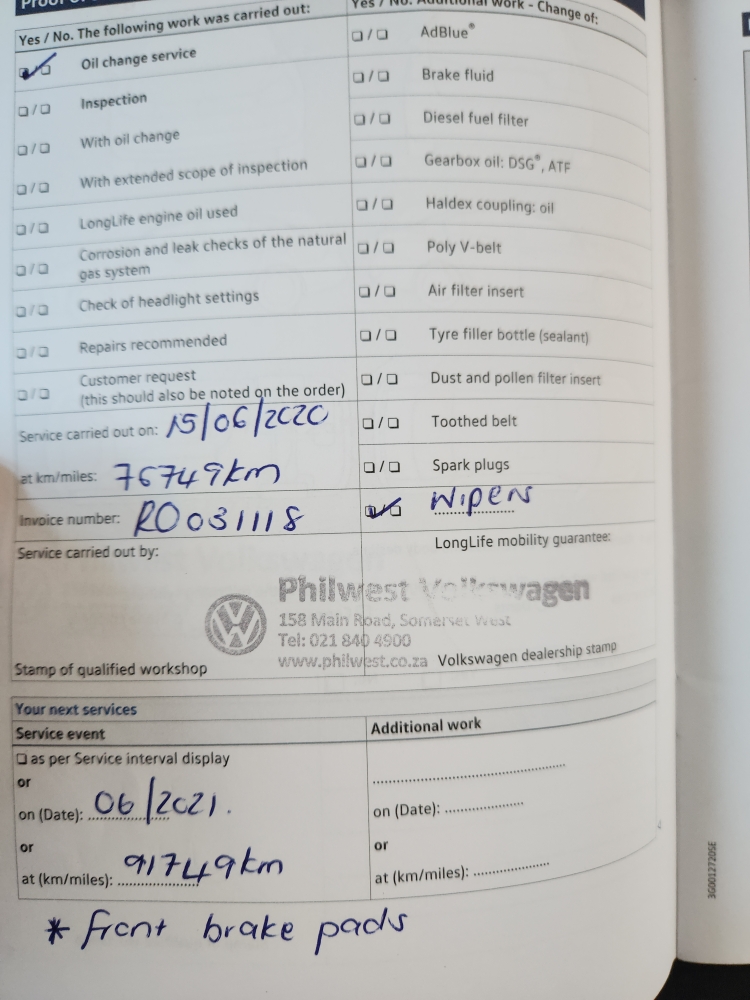 Yes / No. The following work was carried out:
❏ / ❏ Oil change service
❏ / ❏ Inspection
❏ / ❏ With oil change
❏ / ❏ With extended scope of inspection
❏ / ❏ LongLife engine oil used
❏ / ❏ Corrosion and leak checks of the natural
gas system
❏ / ❏ Check of headlight settings
❏ / ❏ Repairs recommended
❏ / ❏ Customer request
(this should also be noted on the order)
Service carried out on: 15/06/2020
at km/miles: 76749km
Invoice number: RO031118
Service carried out by:
Stamp of qualified workshop
Yes / No. Additional work - Change of:
❏ / ❏ AdBlue®
❏ / ❏ Brake fluid
❏ / ❏ Diesel fuel filter
❏ / ❏ Gearbox oil: DSG®, ATF
❏ / ❏ Haldex coupling: oil
❏ / ❏ Poly V-belt
❏ / ❏ Air filter insert
❏ / ❏ Tyre filler bottle (sealant)
❏ / ❏ Dust and pollen filter insert
❏ / ❏ Toothed belt
❏ / ❏ Spark plugs
❏ / ❏ Wipers
LongLife mobility guarantee:
Philwest Volkswagen
158 Main Road, Somerset West
Tel: 021 840 4900
www.philwest.co.za
Volkswagen dealership stamp
Your next services
Service event
❏ as per Service interval display
or
on (Date): 06/2021.
or
at (km/miles): 91749km
Additional work
on (Date):
or
at (km/miles):
* front brake pads
3G0012720SE